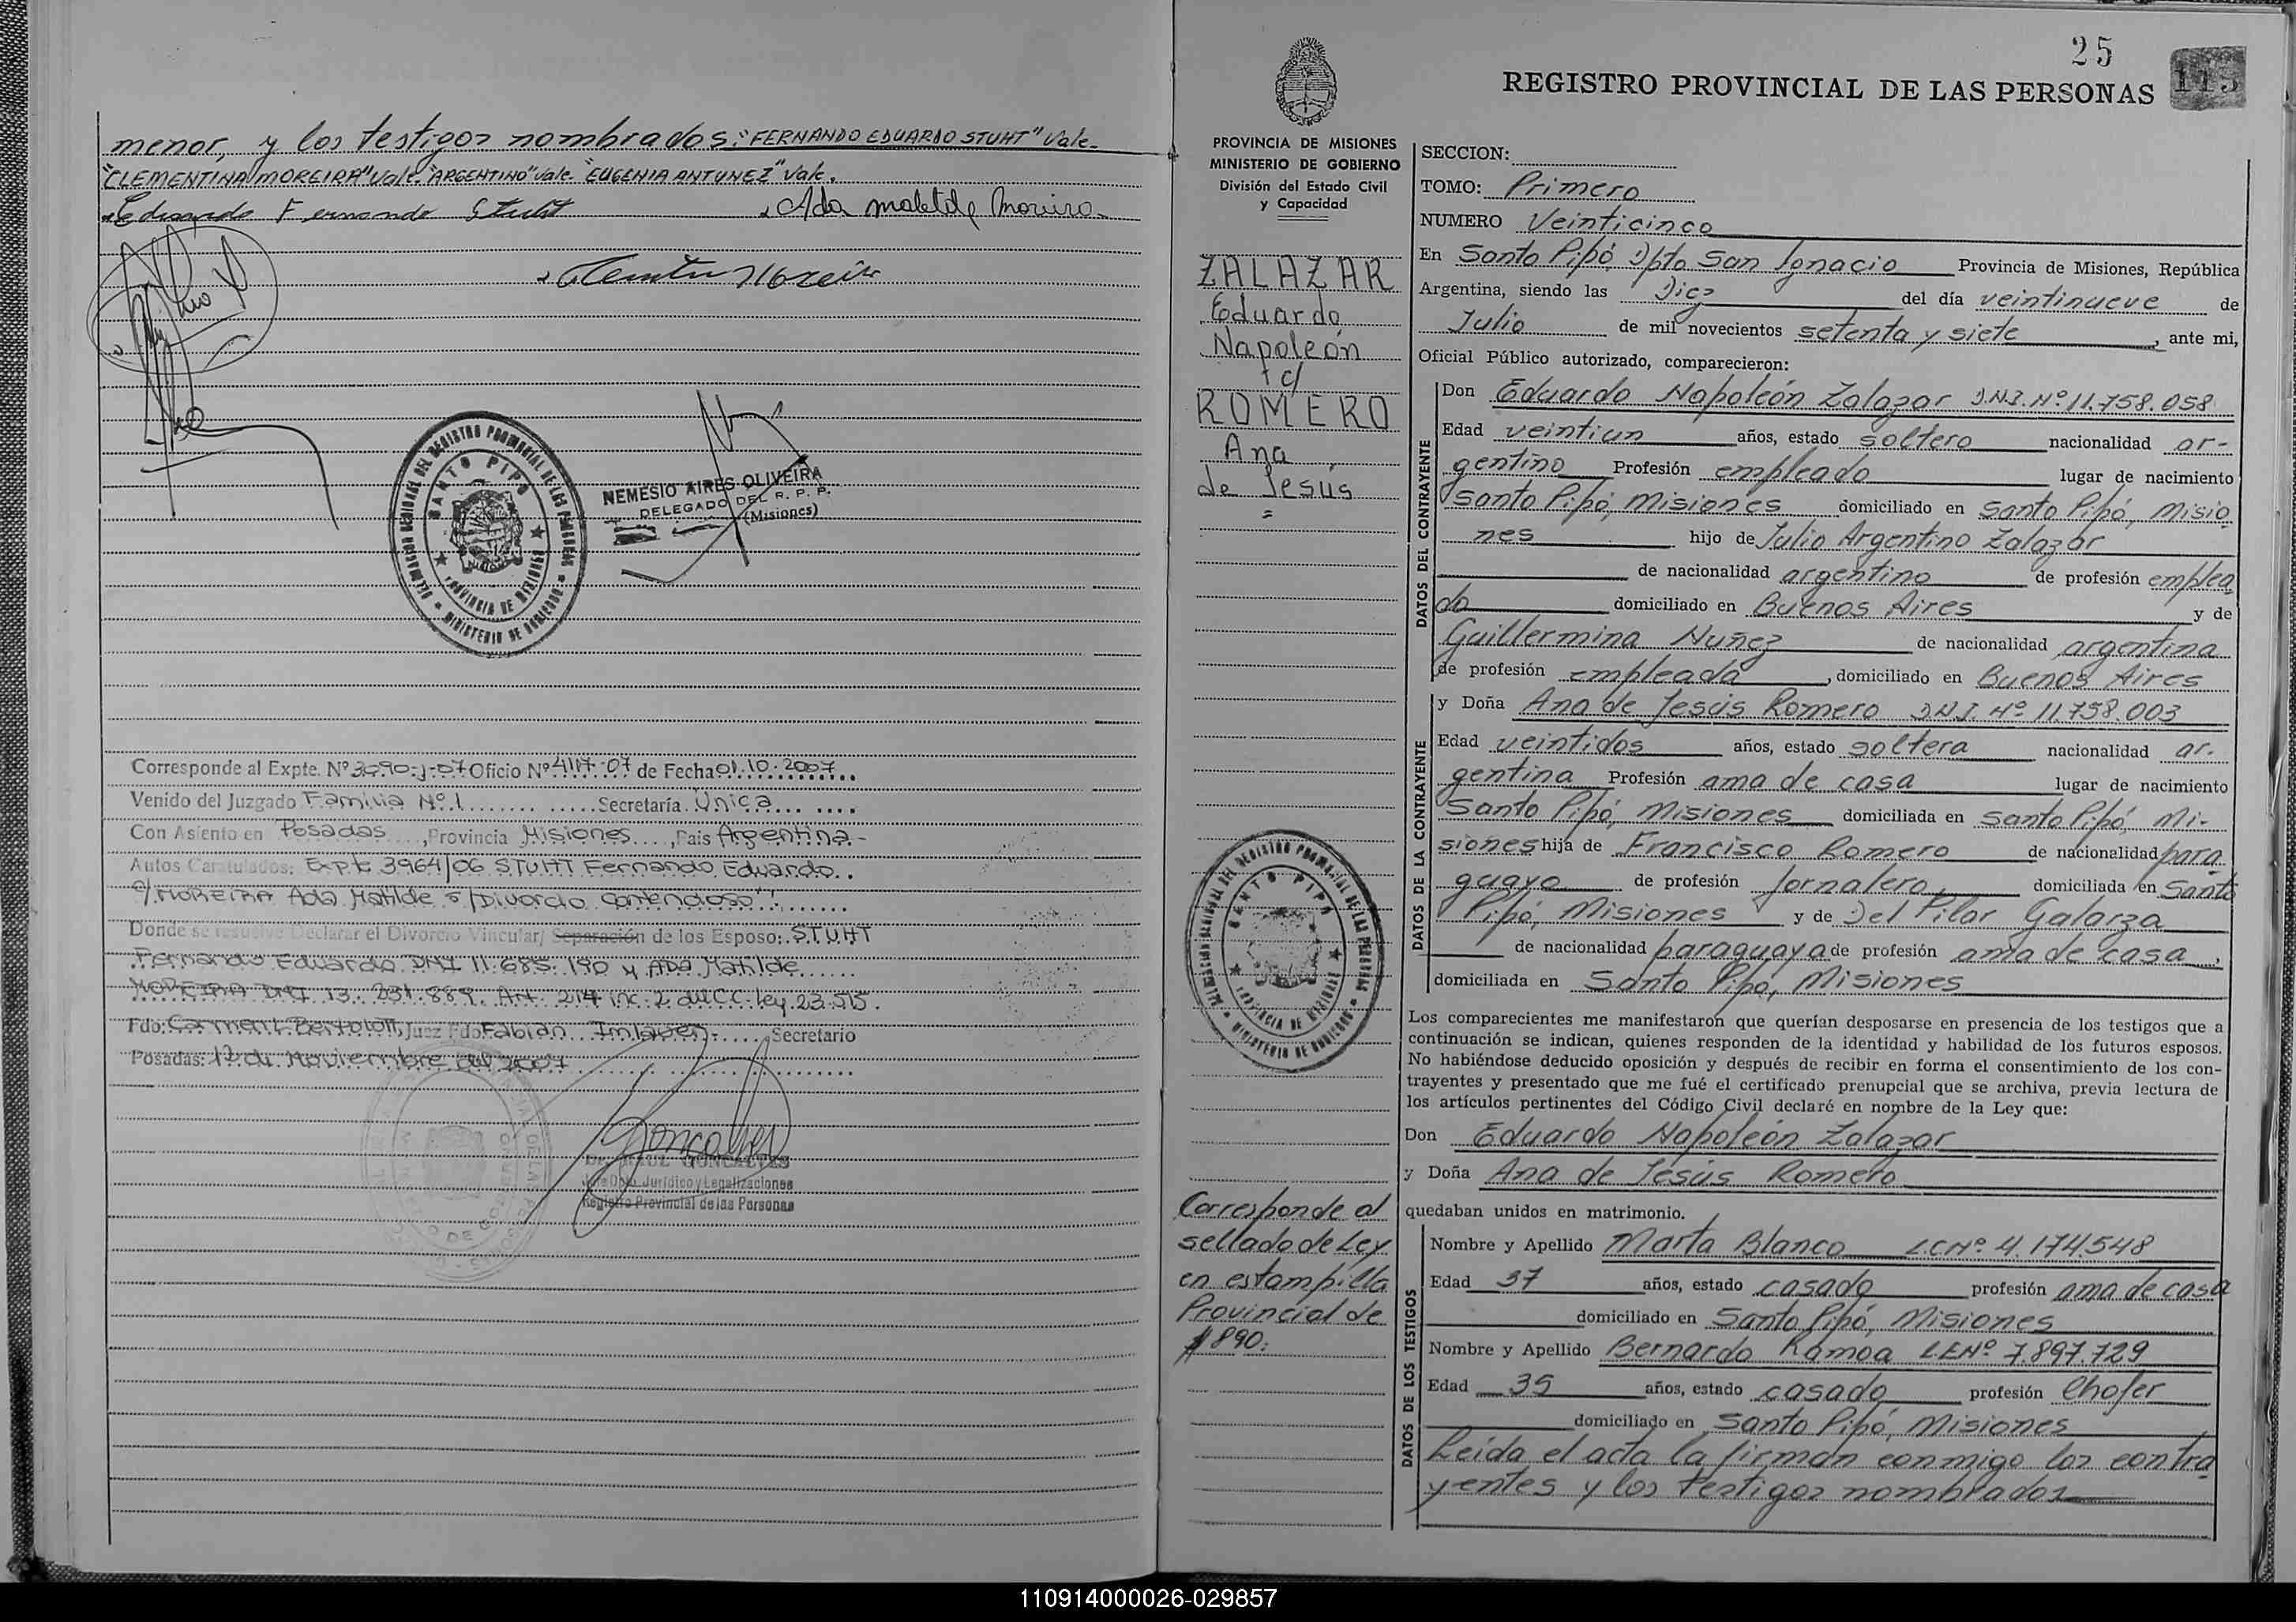 menor, y los testigos nombrados: "FERNANDO EDUARDO STUHT" Vale.
"CLEMENTINA MOREIRA" Vale. "ARGENTINO" Vale. "EUGENIA ANTUNEZ" Vale.
Eduardo Fernando Stuht Ada Matilde Moreira
DELEGACION REGIONAL DEL REGISTRO PROVINCIAL DE LAS PERSONAS
SANTO PIPO
PROVINCIA DE MISIONES
MINISTERIO DE GOBIERNO
NEMESIO AIRES OLIVEIRA
DELEGADO DEL R. P. P.
(Misiones)
Corresponde al Expte. Nº 3090-J-07 Oficio Nº 4117-07 de Fecha 01.10.2007
Venido del Juzgado Familia Nº 1 Secretaría Única
Con Asiento en Posadas, Provincia Misiones, Pais Argentina.-
Autos Caratulados: Expte 3964/06 STUHT Fernando Eduardo
c/ MOREIRA Ada Matilde s/Divorcio Contencioso"
Donde se resuelve Declarar el Divorcio Vincular/ Separación de los Esposo: STUHT
Fernando Eduardo DNI 11.685.190 y ADA Matilde
MOREIRA DNI 13.231.889. Art. 214 inc. 2 del C.C. Ley 23.515.
Fdo: Carmen Bertolotti Juez Fdo Fabián Secretario
Posadas: 12 de Noviembre del 2007
Dr. RAUL GONCALVES
Jefe Dpto. Jurídico y Legalizaciones
Registro Provincial de las Personas
25
REGISTRO PROVINCIAL DE LAS PERSONAS 115
PROVINCIA DE MISIONES
MINISTERIO DE GOBIERNO
División del Estado Civil
y Capacidad
ZALAZAR
Eduardo
Napoleón
c/
ROMERO
Ana
de Jesús
=
DELEGACION REGIONAL DEL REGISTRO PROVINCIAL DE LAS PERSONAS
SANTO PIPO
PROVINCIA DE MISIONES
MINISTERIO DE GOBIERNO
Corresponde al
sellado de Ley
en estampilla
Provincial de
$ 890.
SECCION:
TOMO: Primero
NUMERO Veinticinco
En Santo Pipó, Dpto San Ignacio Provincia de Misiones, República
Argentina, siendo las Diez del día veintinueve de
Julio de mil novecientos setenta y siete, ante mi,
Oficial Público autorizado, comparecieron:
DATOS DEL CONTRAYENTE
Don Eduardo Napoleón Zalazar D.N.I. Nº 11.758.058
Edad veintiun años, estado soltero nacionalidad ar-
gentino Profesión empleado lugar de nacimiento
Santo Pipó, Misiones domiciliado en Santo Pipó, Misio
nes hijo de Julio Argentino Zalazar
de nacionalidad argentino de profesión emplea
do domiciliado en Buenos Aires y de
Guillermina Nuñez de nacionalidad argentina
de profesión empleada, domiciliado en Buenos Aires
DATOS DE LA CONTRAYENTE
y Doña Ana de Jesús Romero D.N.I. Nº 11.758.003
Edad veintidos años, estado soltera nacionalidad ar.
gentina Profesión ama de casa lugar de nacimiento
Santo Pipó, Misiones domiciliada en Santo Pipó, Mi-
siones hija de Francisco Romero de nacionalidad para
guayo de profesión Jornalero, domiciliada en Santo
Pipó, Misiones y de Del Pilar Galarza
de nacionalidad paraguaya de profesión ama de casa,
domiciliada en Santo Pipó, Misiones
Los comparecientes me manifestaron que querían desposarse en presencia de los testigos que a
continuación se indican, quienes responden de la identidad y habilidad de los futuros esposos.
No habiéndose deducido oposición y después de recibir en forma el consentimiento de los con-
trayentes y presentado que me fué el certificado prenupcial que se archiva, previa lectura de
los artículos pertinentes del Código Civil declaré en nombre de la Ley que:
Don Eduardo Napoleón Zalazar
y Doña Ana de Jesús Romero
quedaban unidos en matrimonio.
DATOS DE LOS TESTIGOS
Nombre y Apellido Marta Blanco L.C.Nº 4.174.548
Edad 37 años, estado casado profesión ama de casa
domiciliado en Santo Pipó, Misiones
Nombre y Apellido Bernardo Ramoa L.E.Nº 7.897.729
Edad 35 años, estado casado profesión Chofer
domiciliado en Santo Pipó, Misiones
Leída el acta la firman conmigo los contra
yentes y los testigos nombrados
110914000026-029857